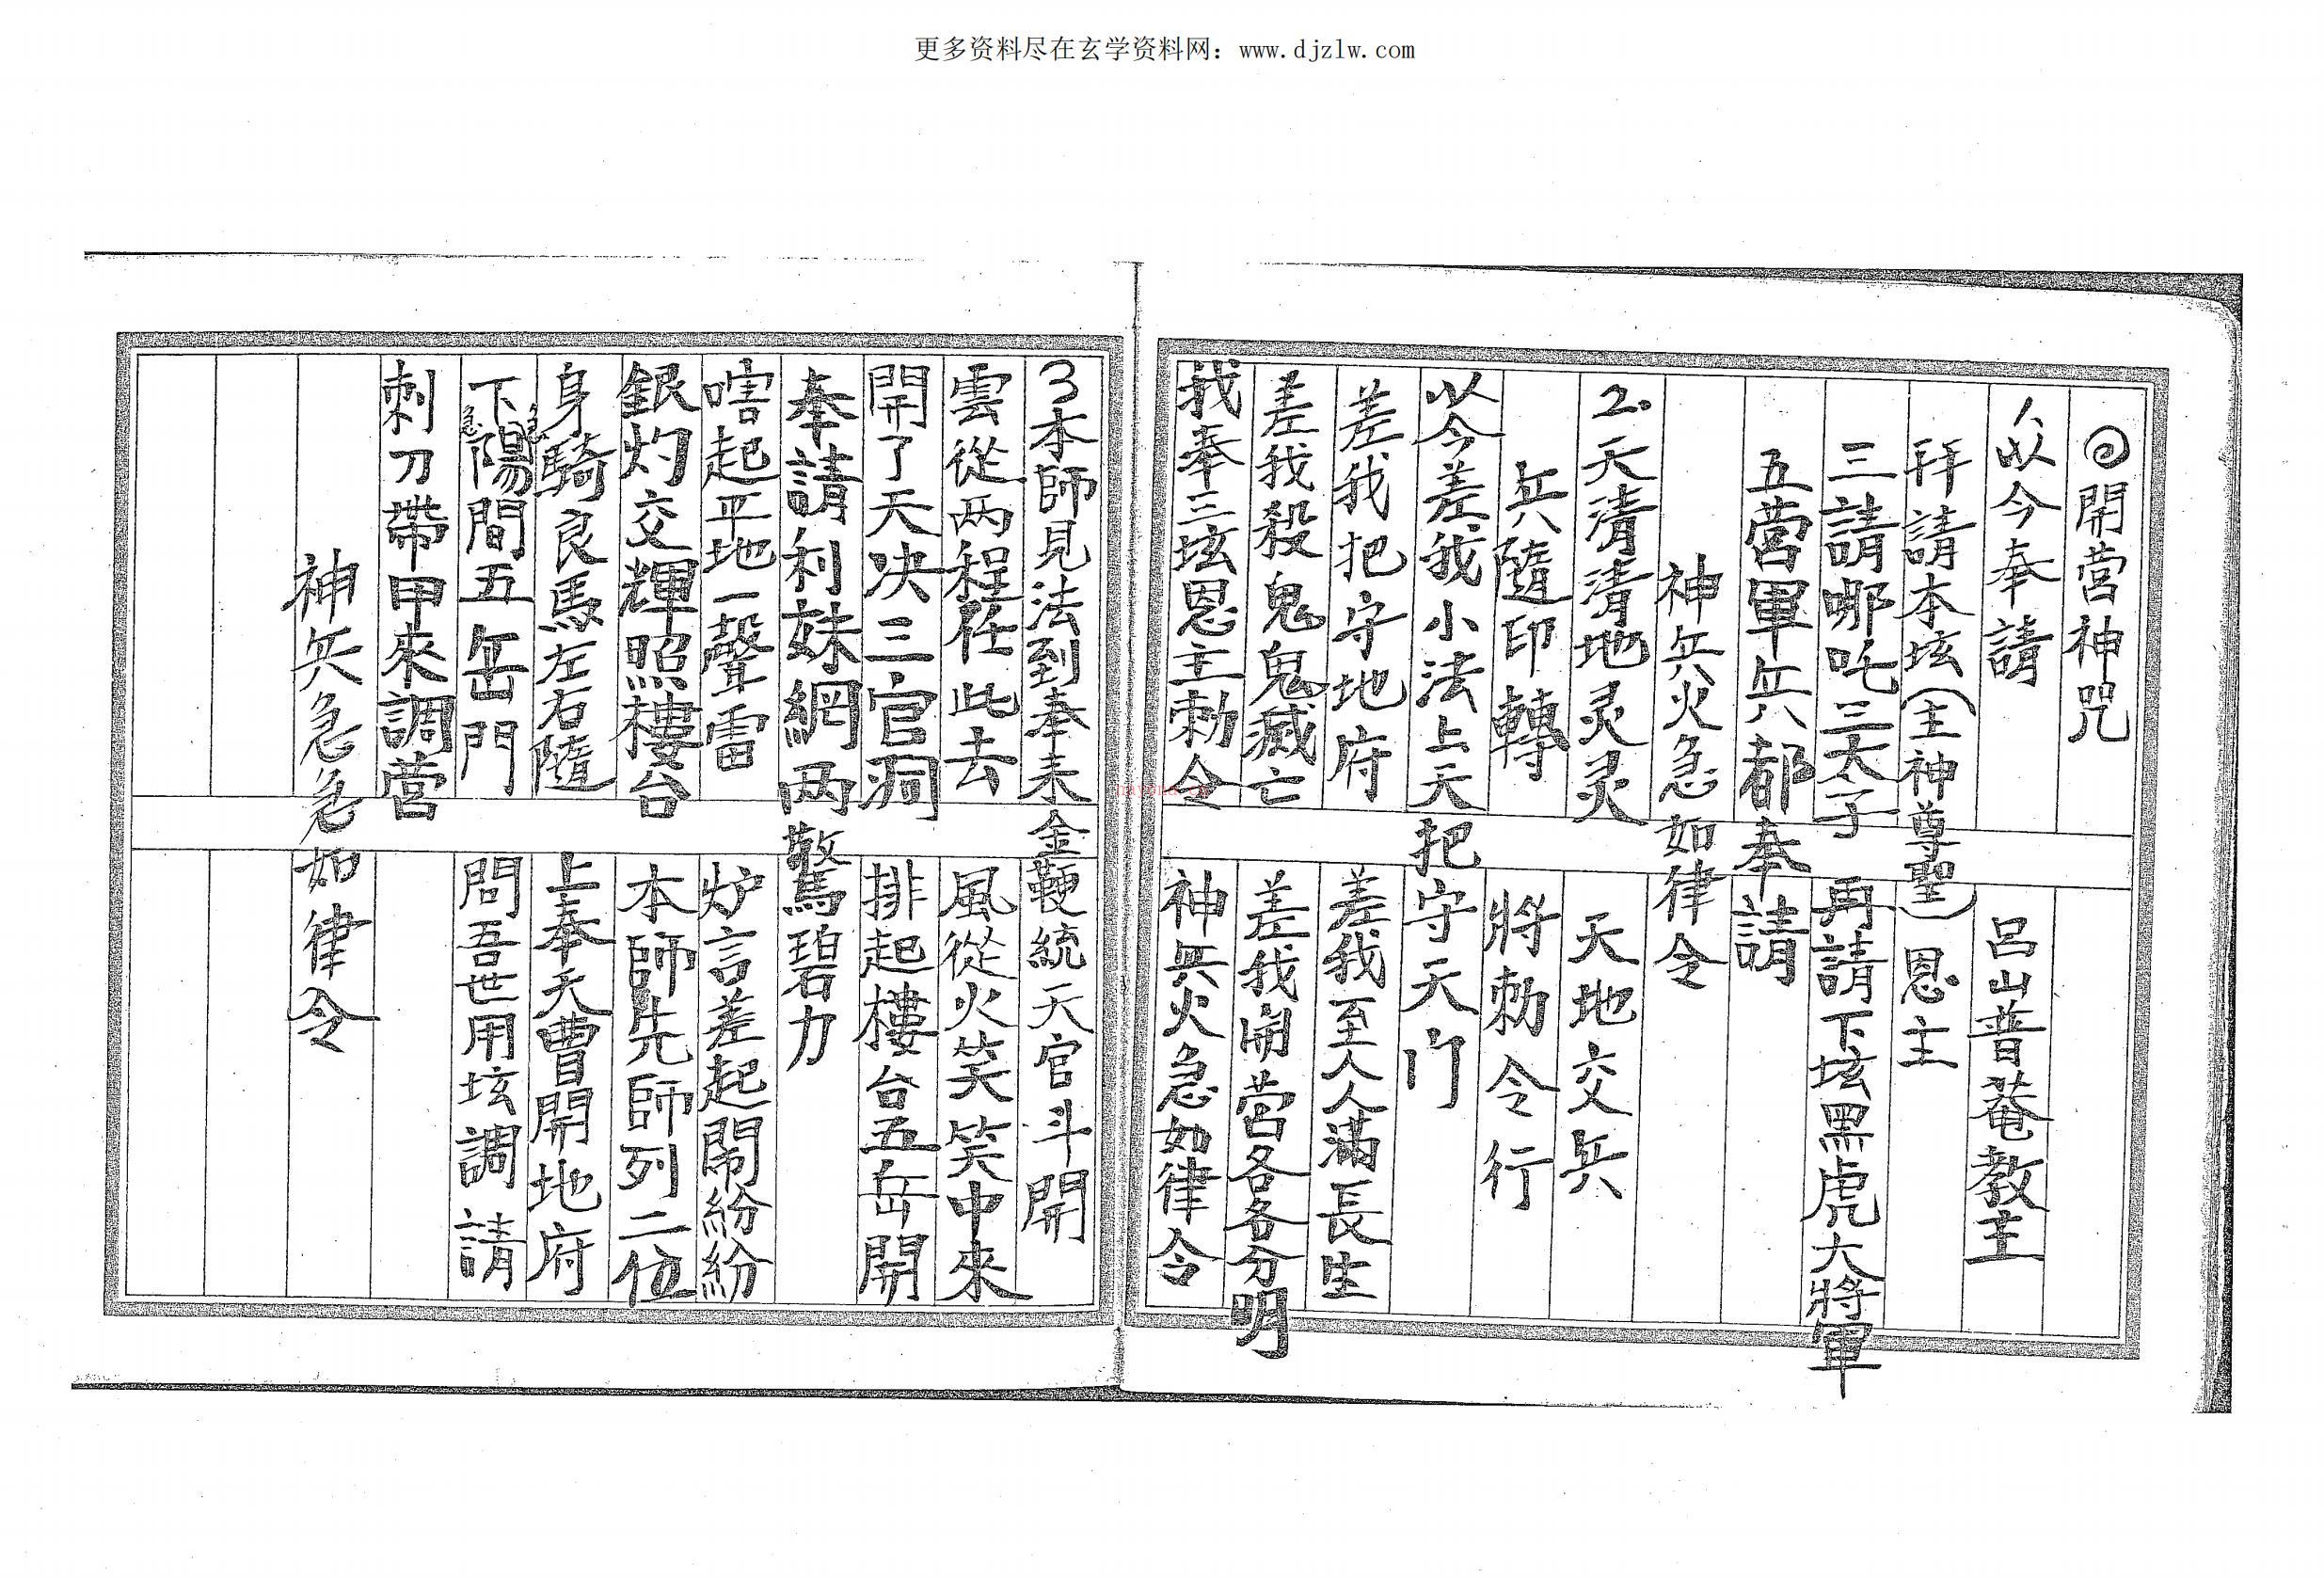 更多资料尽在玄学资料网：www.djzlw.com
開营神咒
1、以今奉請 呂山普菴教主
拜請本坛(主神尊聖)恩主
三請哪吒三太子 再請下坛黑虎大將軍
五营軍兵都奉請
神兵火急如律令
2.天清清地灵灵 天地交兵
兵隨印轉 將勅令行
以今差我小法上天把守天门
差我把守地府 差我至人人滿長生
差我殺鬼鬼滅亡 差我開营各各分明
我奉三坛恩主勅令 神兵火急如律令
3本師見法到奉来金鞭統天官斗開
雲從两程任此去 風從火笑笑中來
開了天决三官洞 排起樓台五岳開
奉請利妹網两驚碧力
嗐起平地一聲雷 炉言差起閙紛紛
銀灼交輝照樓台 本師先師列二位
身騎良馬左右隨 上奉天曹開地府
下陽間五岳門 問吾世用坛調請
急急
刺刀帶甲來調营
神兵急急如律令
nayona.cn